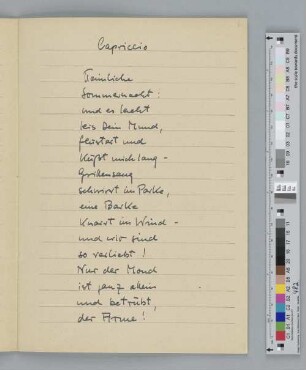 Capriccio
Heimliche
Sommernacht:
und es lacht
leis Dein Mund,
flüstert und
küßt mich lang –
Grillensang
schwirrt im Parke,
eine Barke
knarrt im Wind –
und wir sind
so verliebt!
Nur der Mond
ist ganz allein
und betrübt,
der Arme!